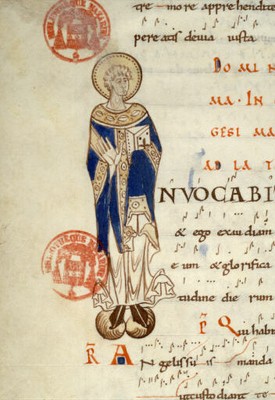 tre more apprehendite
pereatis deuia iusta
DO MI N
MA · IN
GESI MA
AD LA T
NVOCABI
& ego exaudiam
e um & glorifica
tudine die rum
P Qui habi
R A Ngelis su is manda
ut custodiant te